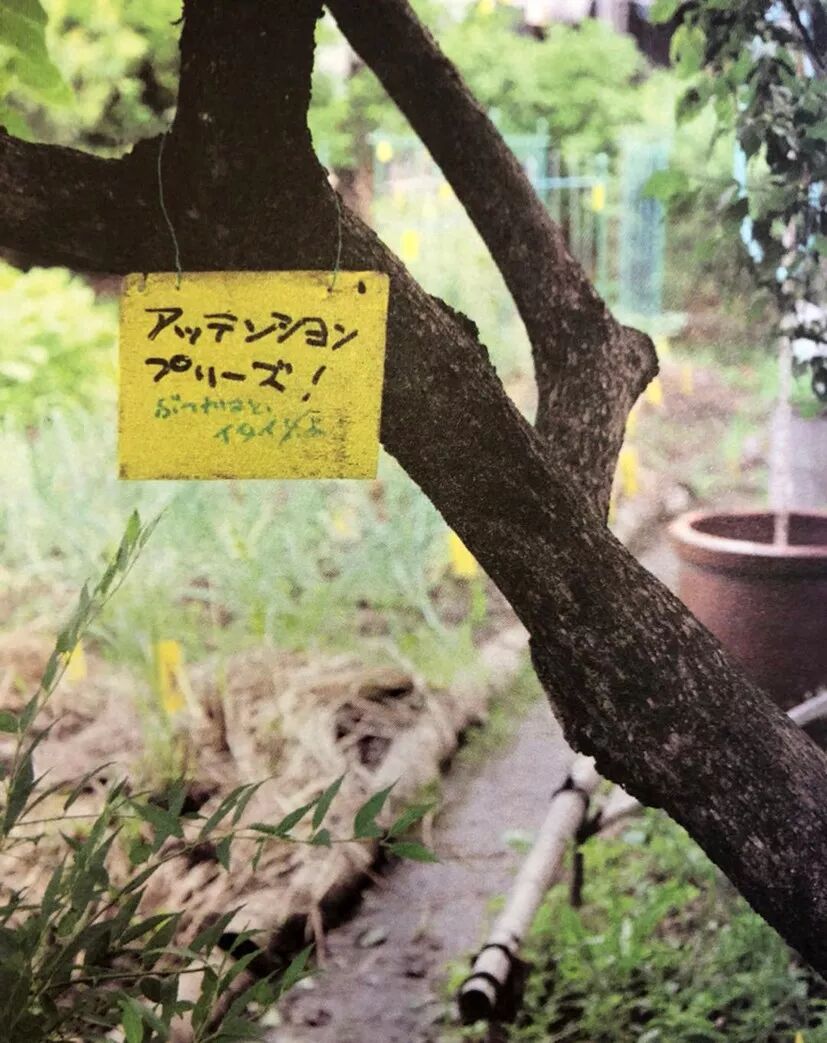 アッテンション
プリーズ！
ぶつかると、
イタイ〆よ